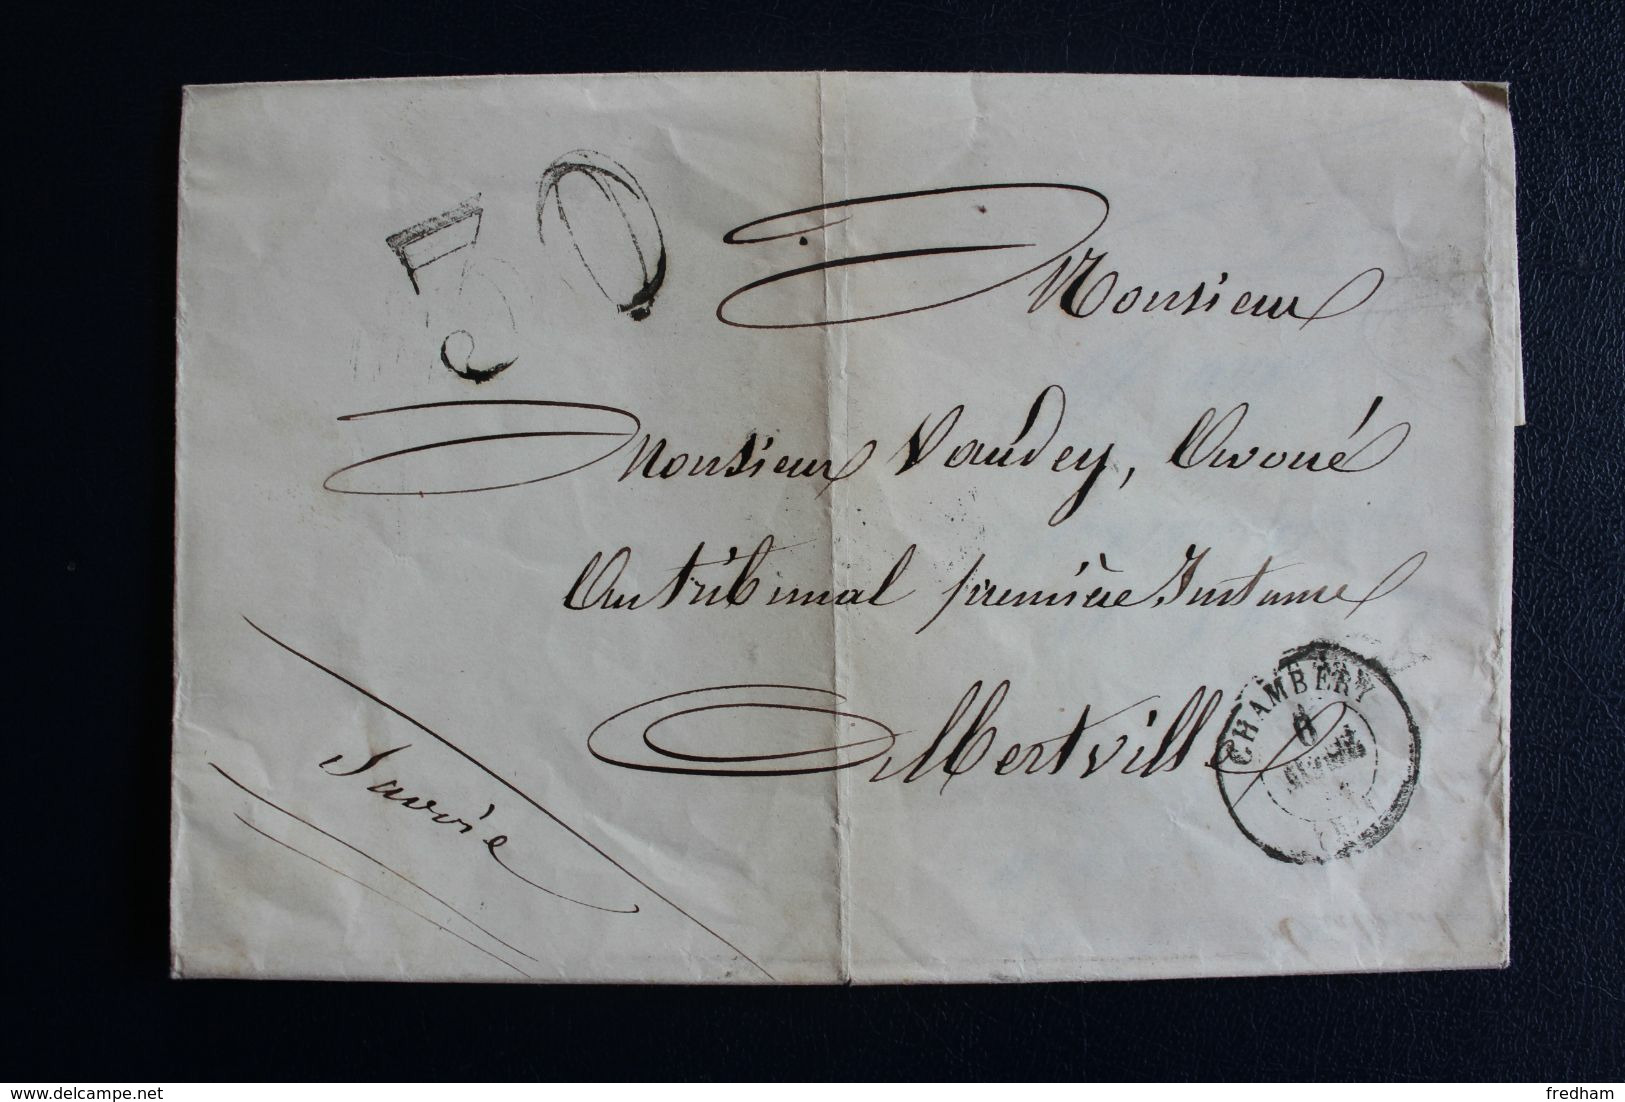 30
Monsieur
Monsieur Vaudey, Avoué
Au tribunal première Instance
Albertville
Savoie
CHAMBÉRY
6
delcampe.net
fredham